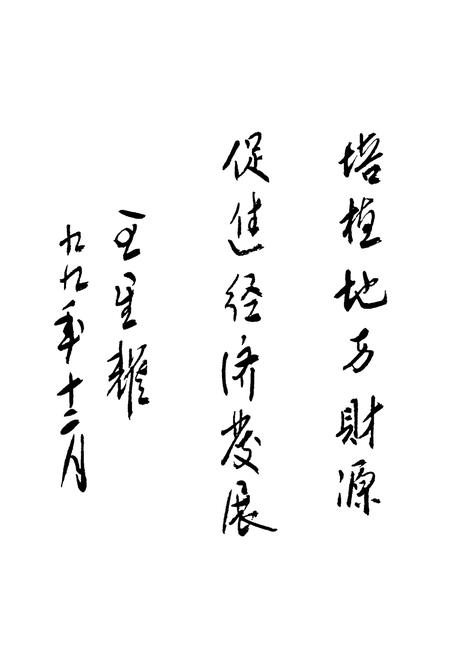 培植地方財源
促进经济發展
王星耀
九九年十二月